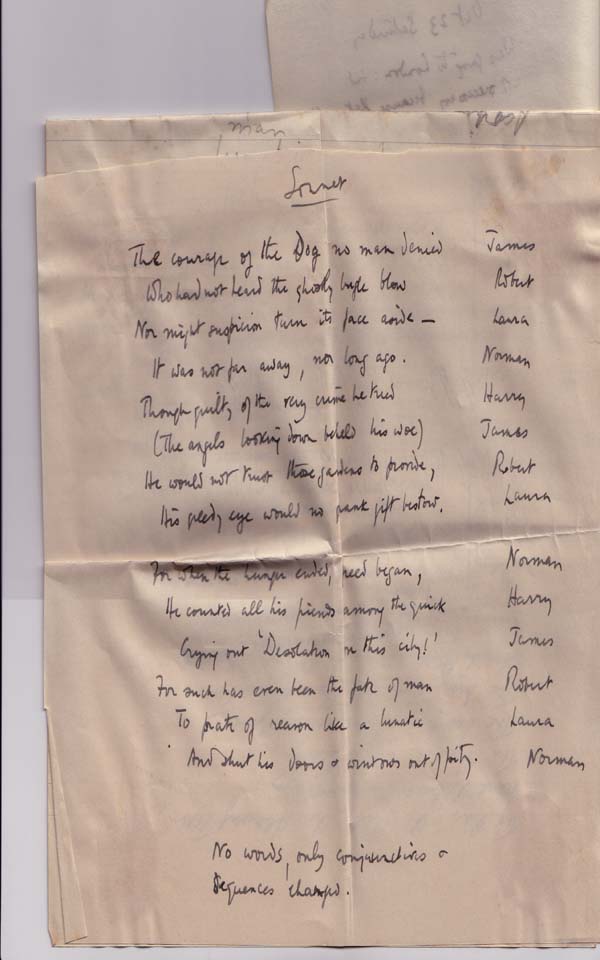 Oct 23 Saturday
Sonnet
The courage of the Dog no man denied James
Who had not heard the ghostly bugle blow Robert
Nor might suspicion turn its face aside — Laura
It was not far away, nor long ago. Norman
Though guilty of the very crime he tried Harry
(The angels looking down beheld his woe) James
He would not trust those gardens to provide, Robert
His greedy eye would no frank gift bestow. Laura
For when the hunger ended, need began, Norman
He counted all his friends among the quick Harry
Crying out 'Desolation on this city!' James
For such has ever been the fate of man Robert
To prate of reason like a lunatic Laura
And shut his doors & windows out of pity. Norman
No words, only conjunctives &
sequences changed.